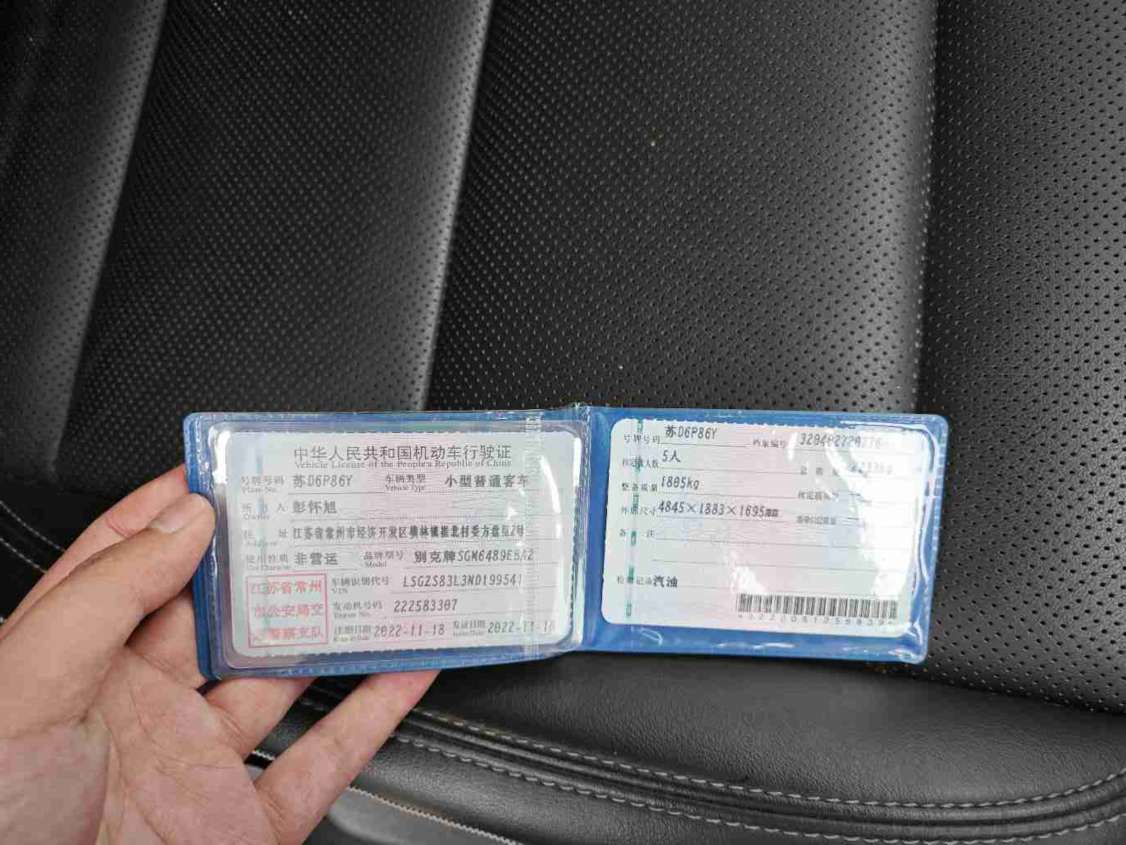 中华人民共和国机动车行驶证
Vehicle License of the People's Republic of China
号牌号码 苏D6P86Y 车辆类型 小型普通客车
Plate No. Vehicle Type
所有人 彭怀旭
Owner
住址 江苏省常州市经济开发区横林镇崔北村委方盘
Address
使用性质 非营运 品牌型号 别克牌SGM6489EBA2
Use Character Model
江苏省常州
市公安局交
通警察支队
车辆识别代号 LSGZS83L3ND199541
VIN
发动机号码 222583307
Engine No.
注册日期 2022-11-18 发证日期 2022-11-18
Register Date Issue Date
号牌号码 苏D6P86Y 档案编号
核定载人数 5人 总质量
整备质量 1805kg 核定载质量
外廓尺寸 4845×1883×1695mm 准牵引总质量
备注
检验记录 汽油